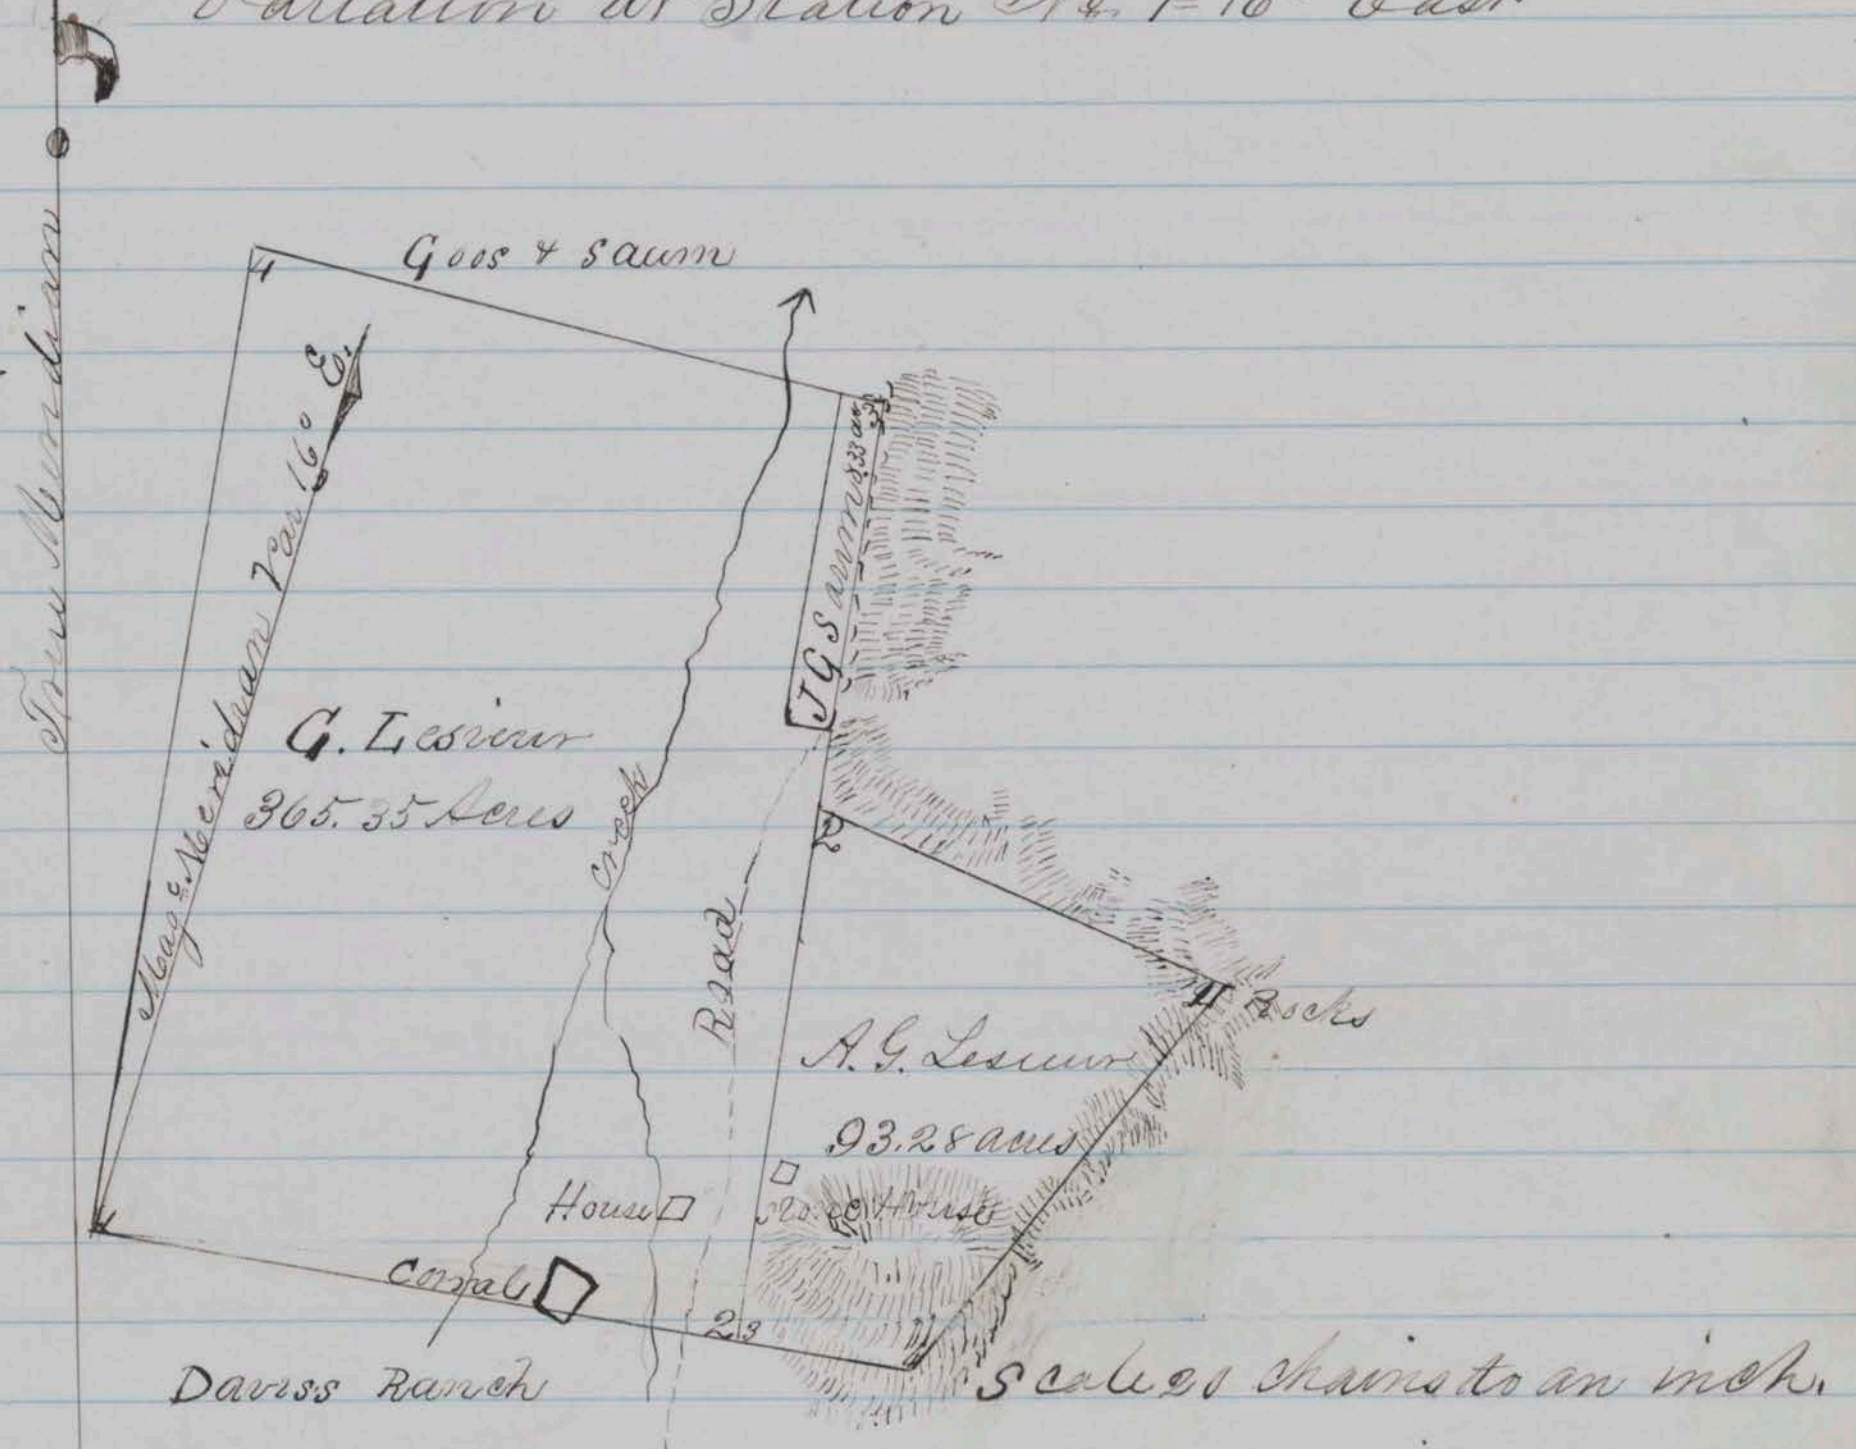 Variation at Station No. 1 = 16° East
True Meridian
4
Goos & Saum
Mag. Meridian Var 16° E.
J G Saum 8.33 ac
G. Lesieur
365.35 Acres
Creek
Road
2
Rocks
A. G. Lesieur
93.28 acres
House
House
1
Corral
2 3
Daviss Ranch
Scale 20 chains to an inch.